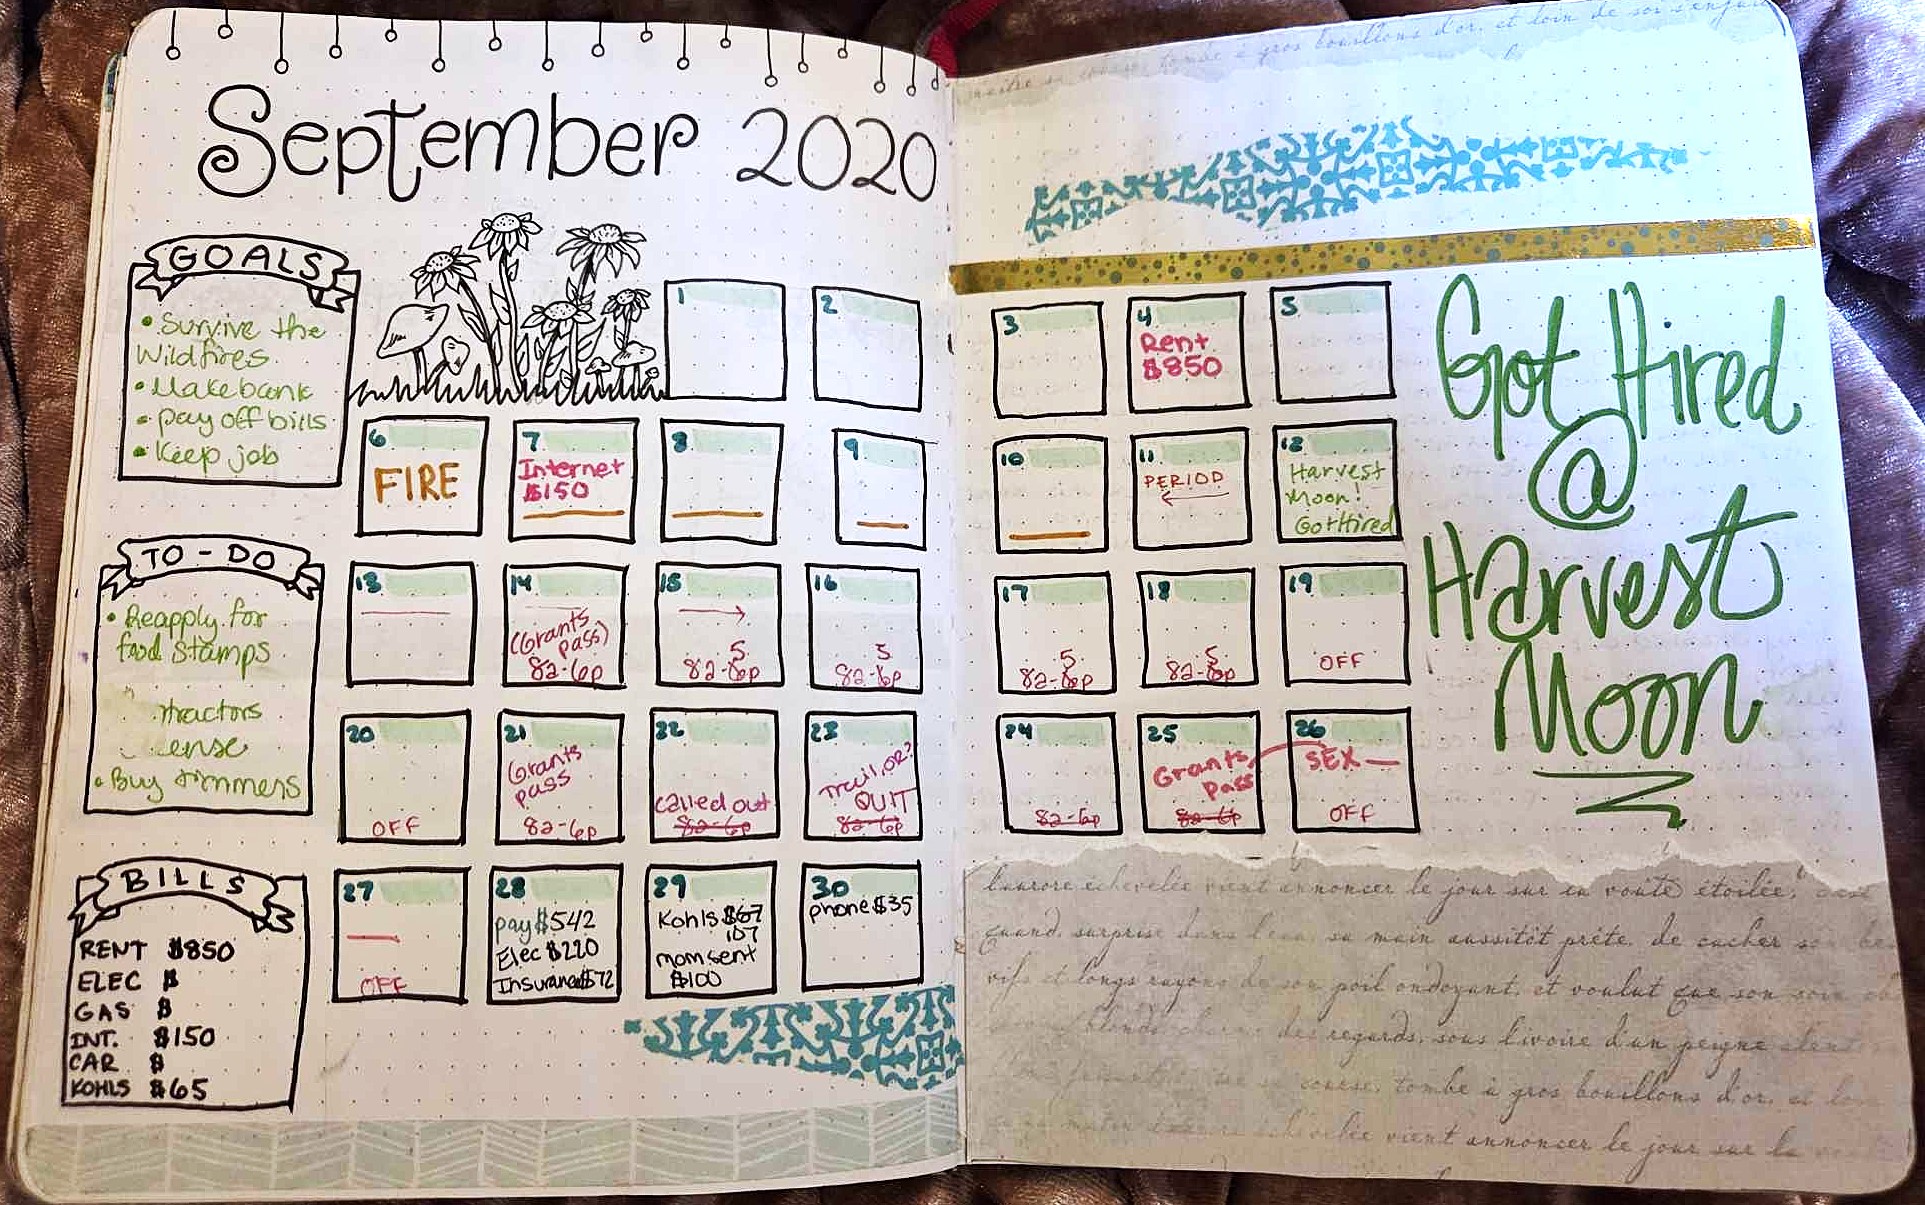 September 2020
GOALS
• Survive the
Wildfires
• Make bank
• pay off bills
• Keep job
TO-DO
• Reapply for
food stamps
• Buy trimmers
BILLS
RENT $850
ELEC $
GAS $
INT. $150
CAR $
KOHLS $65
1
2
3
4
Rent
$850
5
6
FIRE
7
Internet
$150
8
9
10
11
PERIOD
←
12
Harvest
Moon!
Got Hired
13
14
(Grants
pass)
8a-6p
15
5
8a-6p
16
5
8a-6p
17
5
8a-6p
18
5
8a-6p
19
OFF
20
OFF
21
Grants
pass
8a-6p
22
called out
8a-6p
23
Trail, OR?
QUIT
8a-6p
24
8a-6p
25
Grants
Pass
8a-6p
26
SEX —
OFF
27
OFF
28
pay $542
Elec $220
Insurance $72
29
Kohls $67
107
mom sent
$100
30
phone $35
Got Hired
@
Harvest
Moon
et loin de soi s'enfuit
tombe à gros bouillons d'or, et loin de
l'aurore échevelée vient annoncer le jour sur sa voûte étoilée,
quand, surprise dans l'eau, sa main aussitôt prête, de cacher
vifs et longs rayons de son poil ondoyant, et voulut que son soin
des regards, sous l'ivoire d'un peigne
course, tombe à gros bouillons d'or, et
échevelée vient annoncer le jour sur la